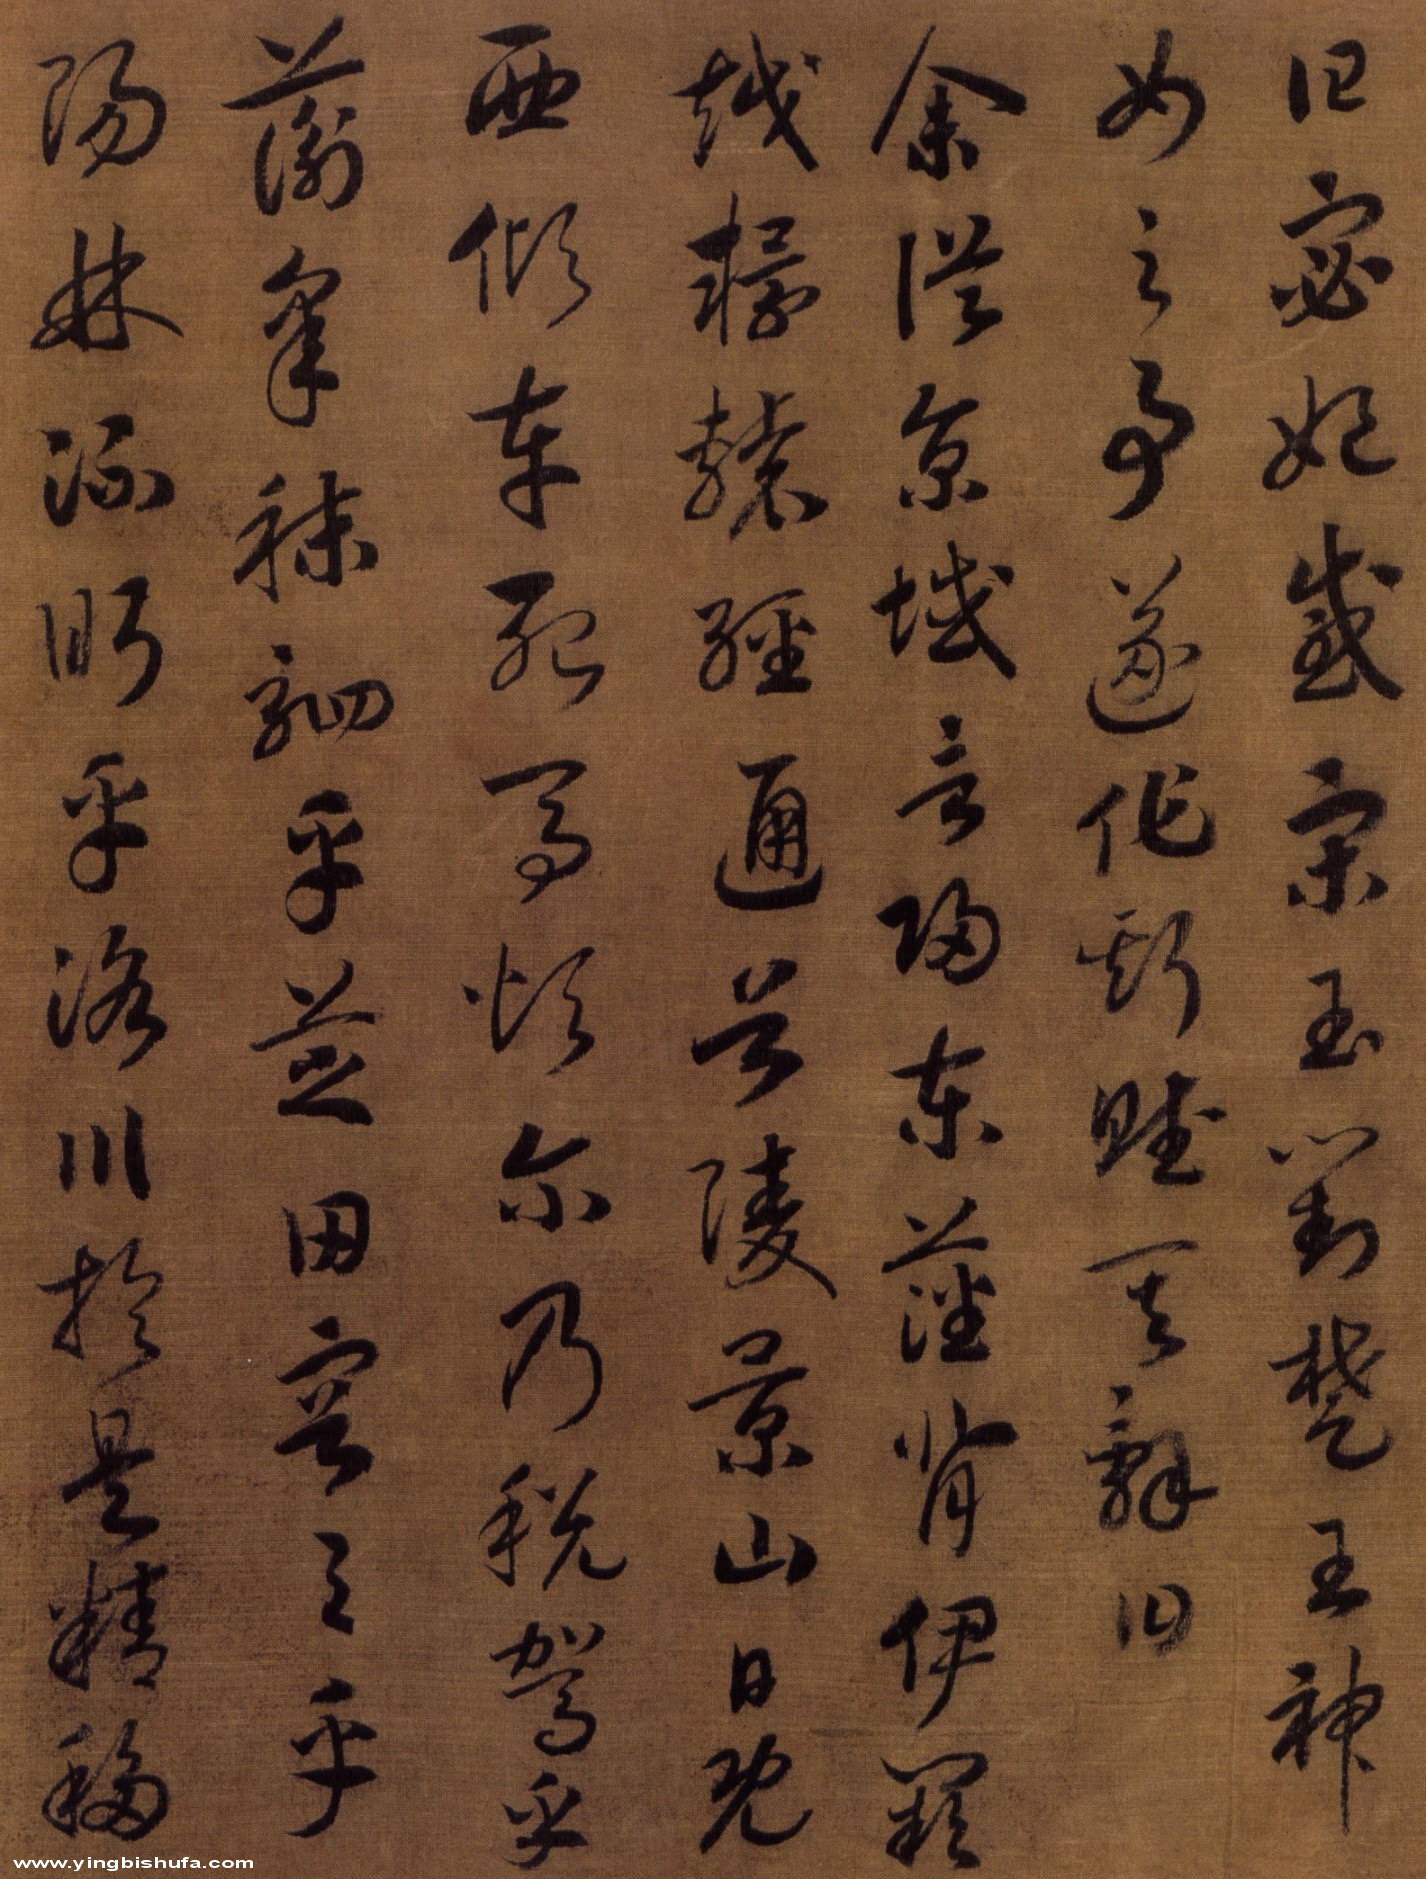 曰宓妃感宋玉對楚王神
女之事遂作斯賦其辭曰
余從京域言歸東藩背伊闕
越轘轅經通谷陵景山日既
西傾車殆馬煩尔乃稅駕乎
蘅皋秣駟乎芝田容与乎
陽林流眄乎洛川於是精移
www.yingbishufa.com